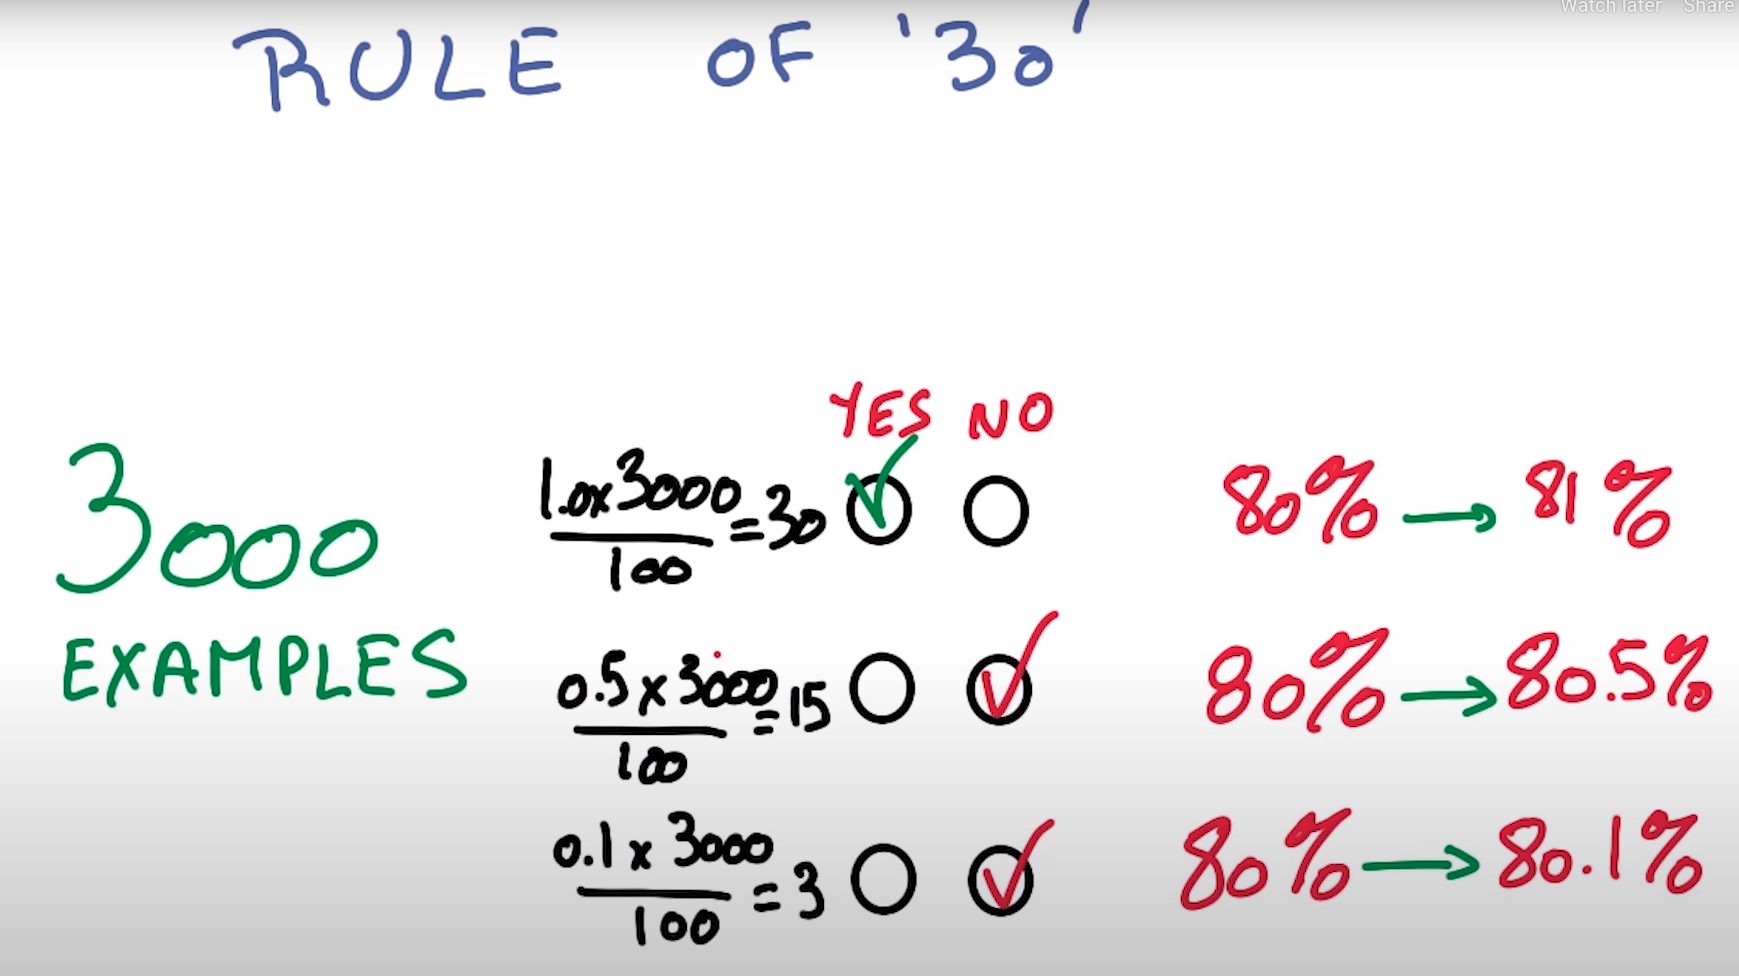 Watch later Share
RULE OF '30'
YES NO
3000
EXAMPLES
1.0x3000
100
=30
80% → 81%
0.5x3000
100
=15
80% → 80.5%
0.1x3000
100
=3
80% → 80.1%